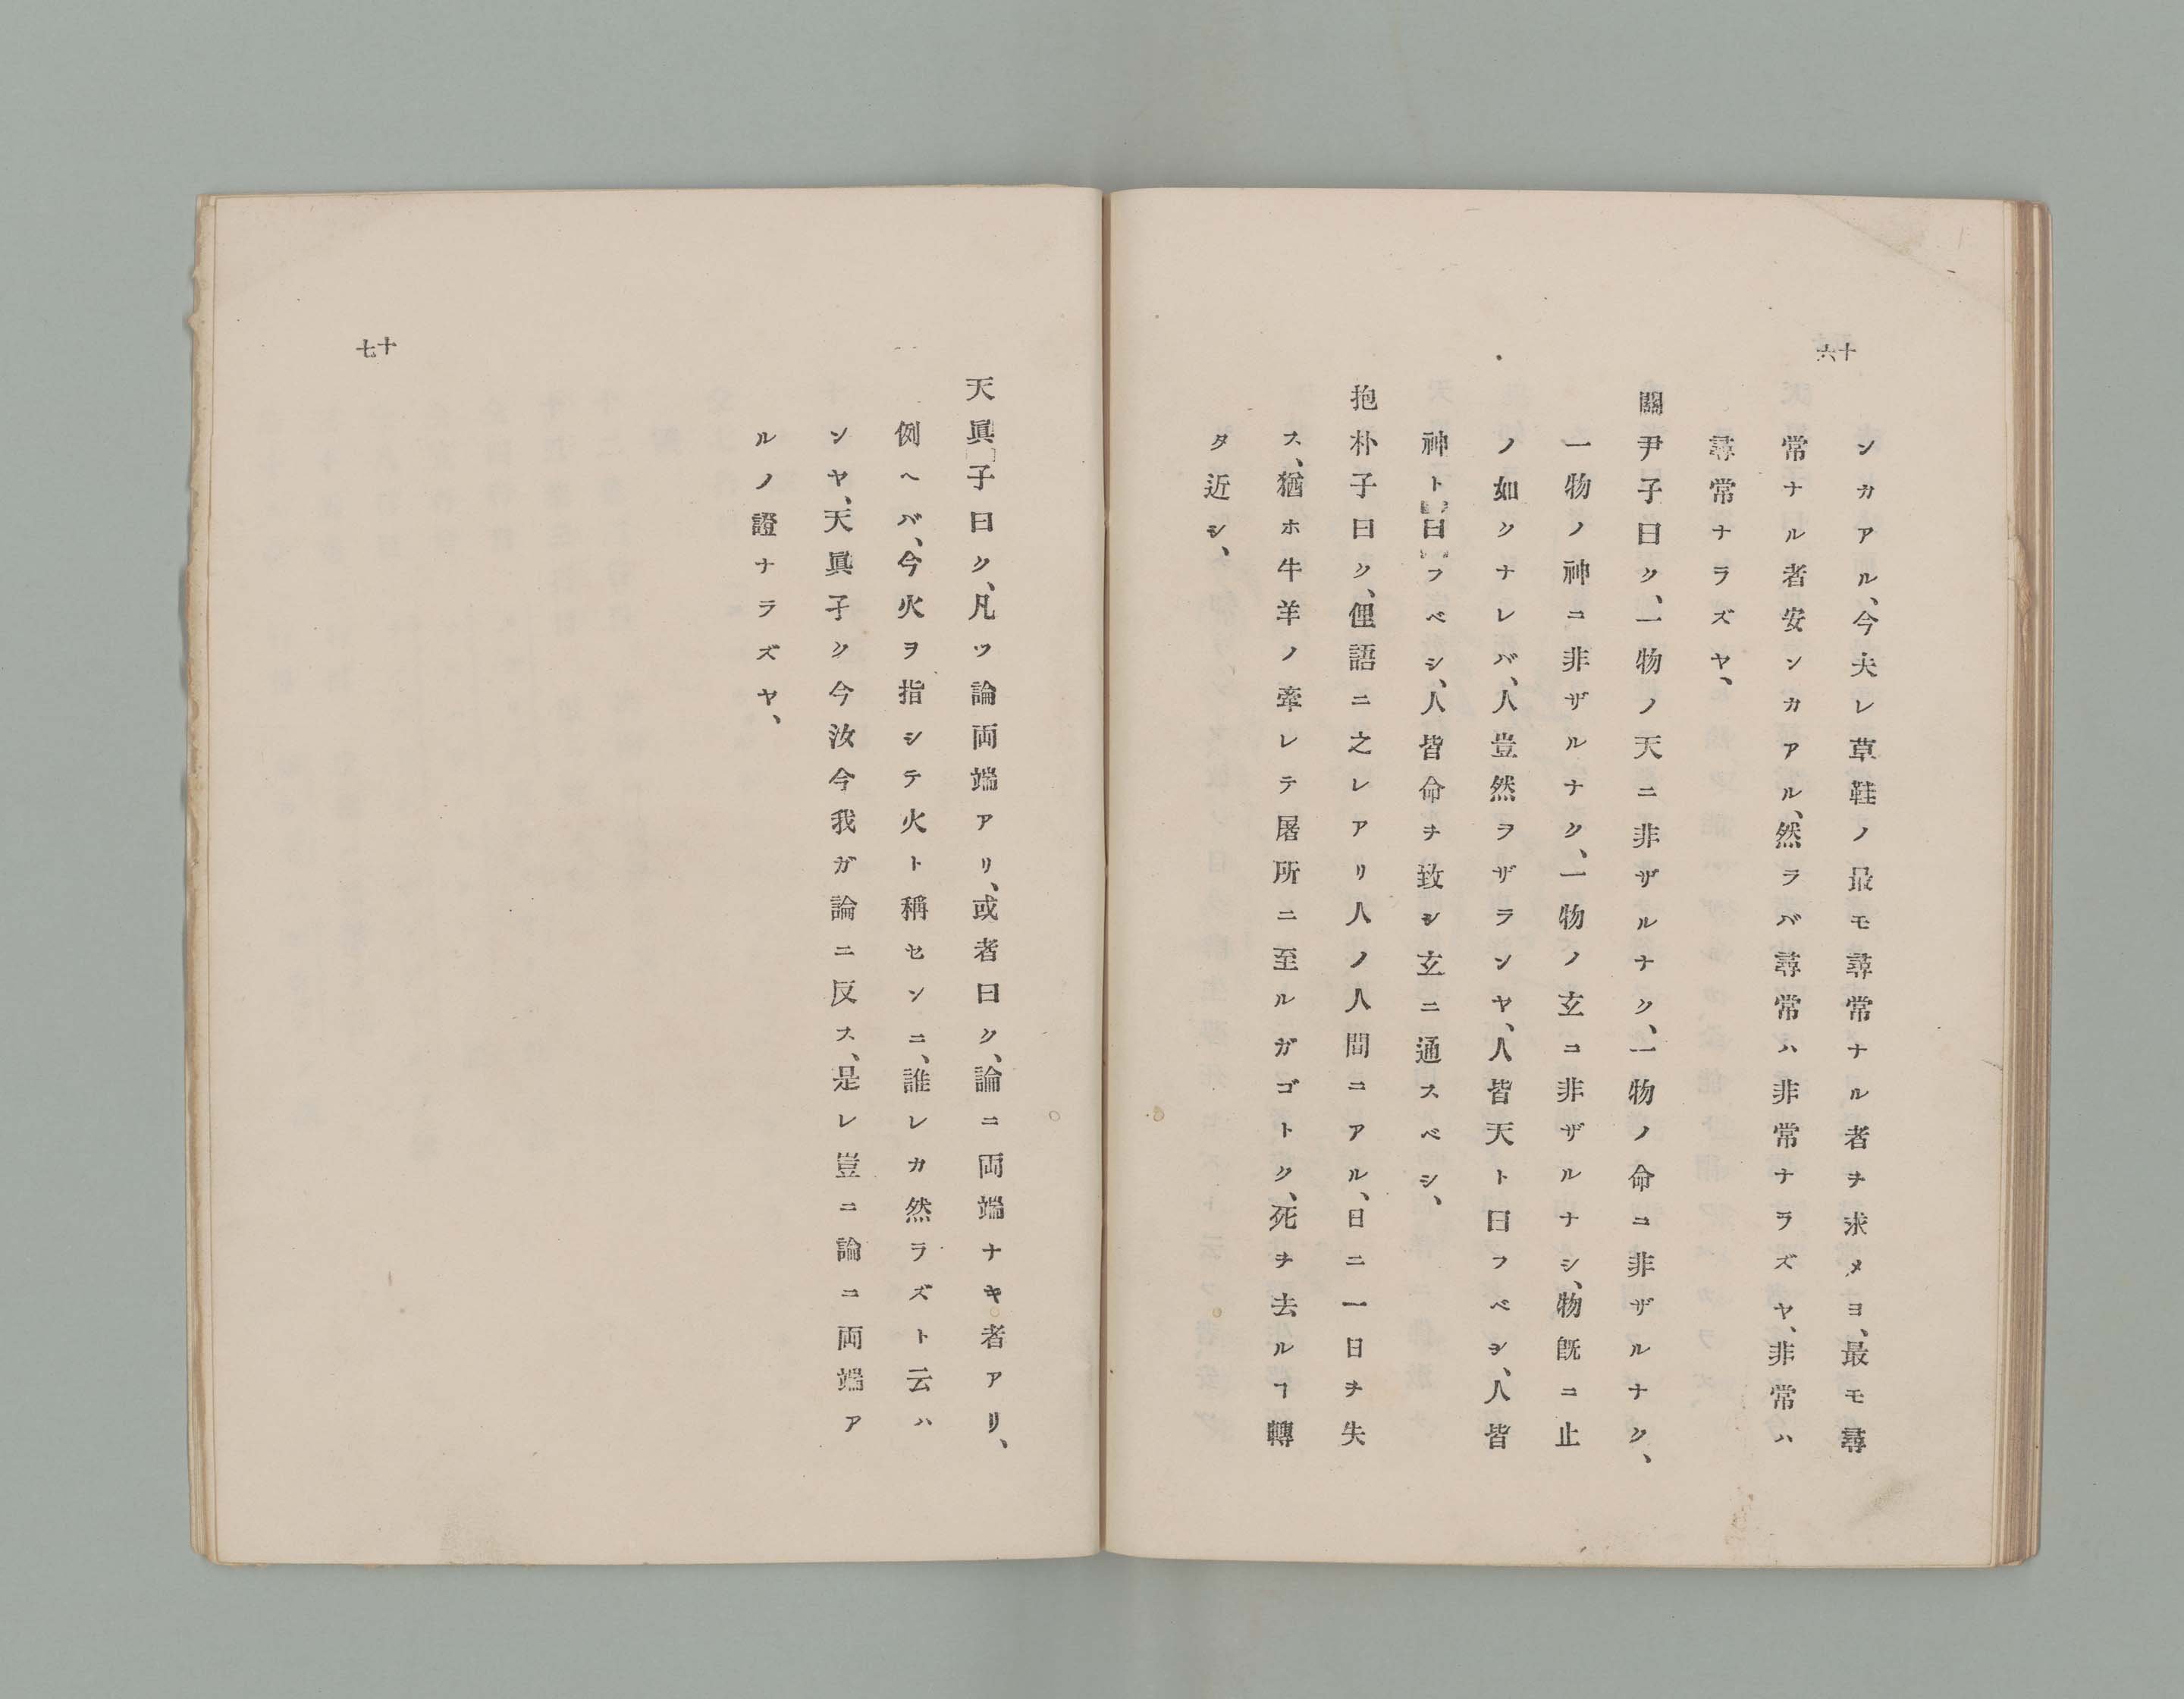 十六
ンカアル、今夫レ草鞋ノ最モ尋常ナル者ヲ求メヨ、最モ尋
常ナル者安ンカアル、然ラバ尋常ハ非常ナラズヤ、非常ハ
尋常ナラズヤ、
關尹子曰ク、一物ノ天ニ非ザルナク、一物ノ命ニ非ザルナク、
一物ノ神ニ非ザルナク、一物ノ玄ニ非ザルナシ、物既ニ止
ノ如クナレバ、人豈然ヲザランヤ、人皆天ト曰フベシ、人皆
神ト曰フベシ、人皆命ヲ致シ玄ニ通スベシ、
抱朴子曰ク、俚語ニ之レアリ人ノ人間ニアル、日ニ一日ヲ失
ス、猶ホ牛羊ノ牽レテ屠所ニ至ルガゴトク、死ヲ去ルヿ轉
タ近シ、
天眞子曰ク、凡ソ論両端アリ、或者曰ク、論ニ両端ナキ者アリ、
例ヘバ、今火ヲ指シテ火ト稱センニ、誰レカ然ラズト云ハ
ンヤ、天眞子ク今汝今我ガ論ニ反ス、是レ豈ニ論ニ両端ア
ルノ證ナラズヤ、
十七